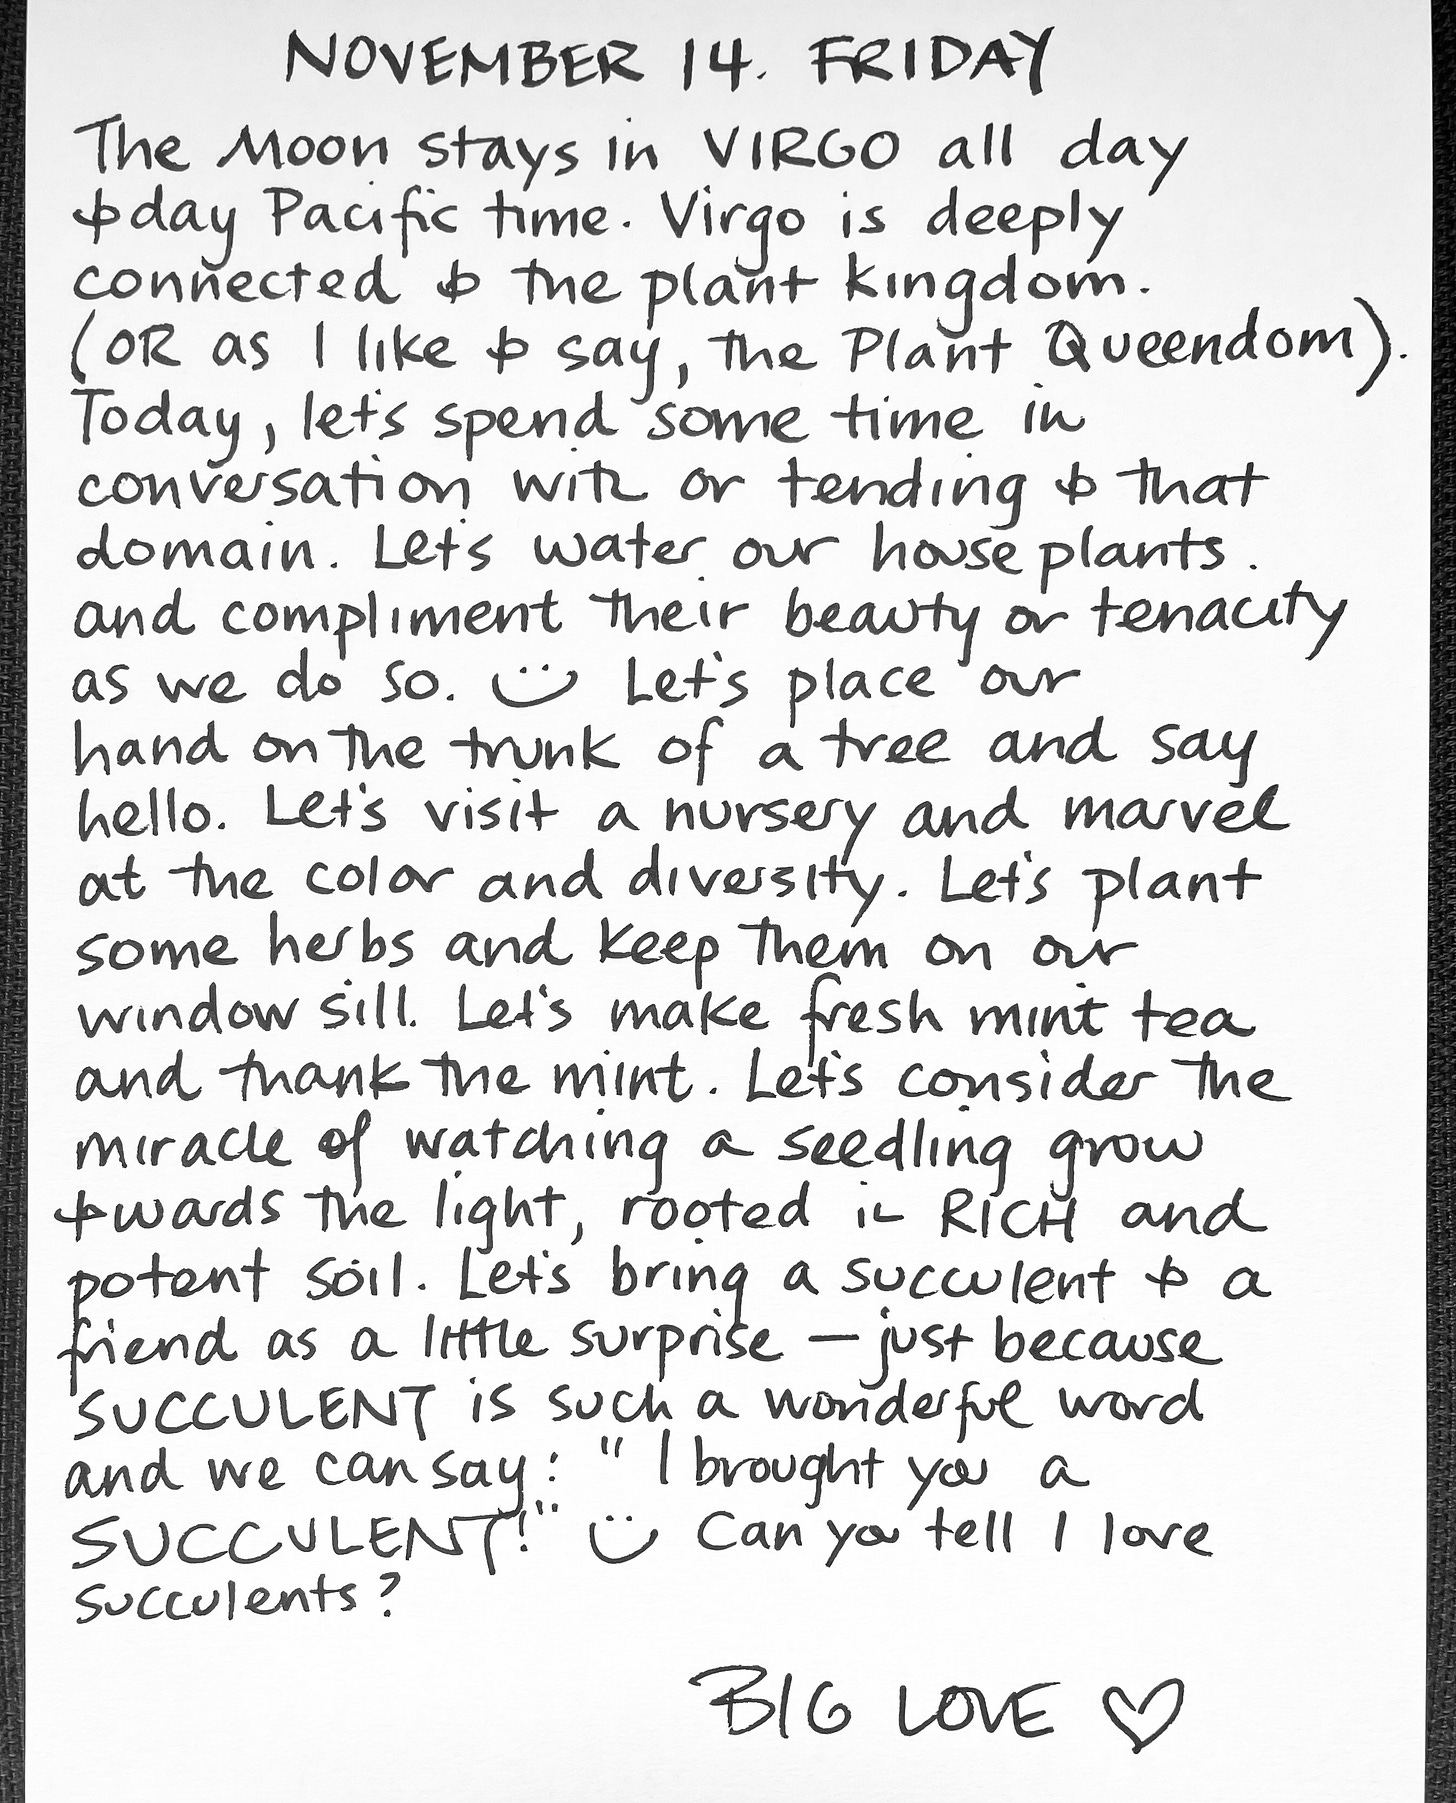 NOVEMBER 14. FRIDAY
The Moon stays in VIRGO all day
today Pacific time. Virgo is deeply
connected to the plant kingdom.
(OR as I like to say, the Plant Queendom).
Today, let's spend some time in
conversation with or tending to that
domain. Let's water our house plants.
and compliment their beauty or tenacity
as we do so. ☺ Let's place our
hand on the trunk of a tree and say
hello. Let's visit a nursery and marvel
at the color and diversity. Let's plant
some herbs and keep them on our
window sill. Let's make fresh mint tea
and thank the mint. Let's consider the
miracle of watching a seedling grow
towards the light, rooted in RICH and
potent soil. Let's bring a succulent to a
friend as a little surprise — just because
SUCCULENT is such a wonderful word
and we can say: "I brought you a
SUCCULENT!" ☺ Can you tell I love
succulents?
BIG LOVE ♡